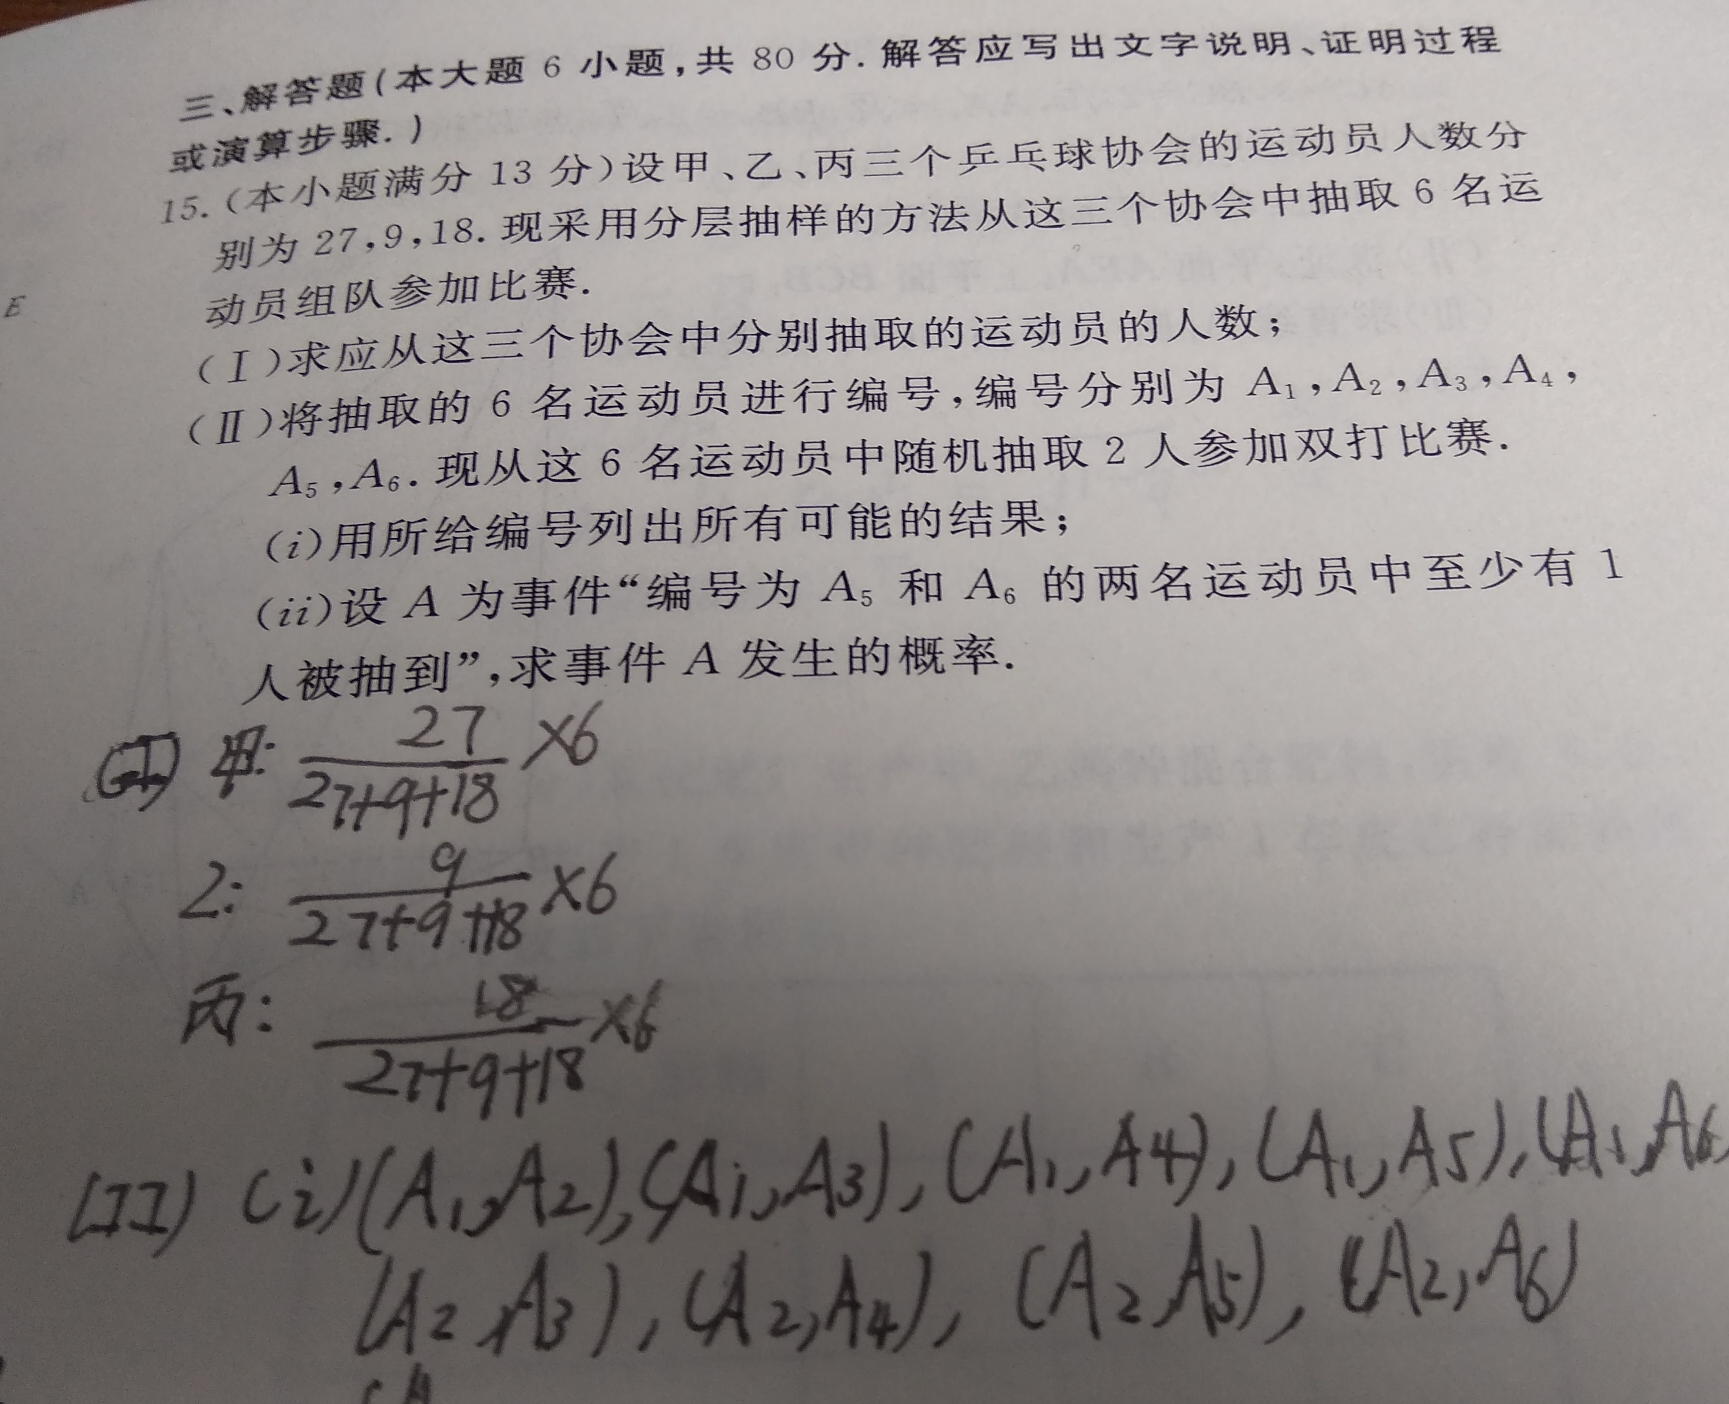 三、解答题(本大题 6 小题,共 80 分. 解答应写出文字说明、证明过程
或演算步骤.)
15.(本小题满分 13 分)设甲、乙、丙三个乒乓球协会的运动员人数分
别为 27,9,18. 现采用分层抽样的方法从这三个协会中抽取 6 名运
动员组队参加比赛.
E
(Ⅰ)求应从这三个协会中分别抽取的运动员的人数;
(Ⅱ)将抽取的 6 名运动员进行编号,编号分别为 A₁,A₂,A₃,A₄,
A₅,A₆. 现从这 6 名运动员中随机抽取 2 人参加双打比赛.
(i)用所给编号列出所有可能的结果;
(ii)设 A 为事件“编号为 A₅ 和 A₆ 的两名运动员中至少有 1
人被抽到”,求事件 A 发生的概率.
(I) 甲: 27/(27+9+18) ×6
乙: 9/(27+9+18) ×6
丙: 18/(27+9+18) ×6
(II) (i)(A₁,A₂),(A₁,A₃),(A₁,A₄),(A₁,A₅),(A₁,A₆
(A₂,A₃),(A₂,A₄),(A₂,A₅),(A₂,A₆)